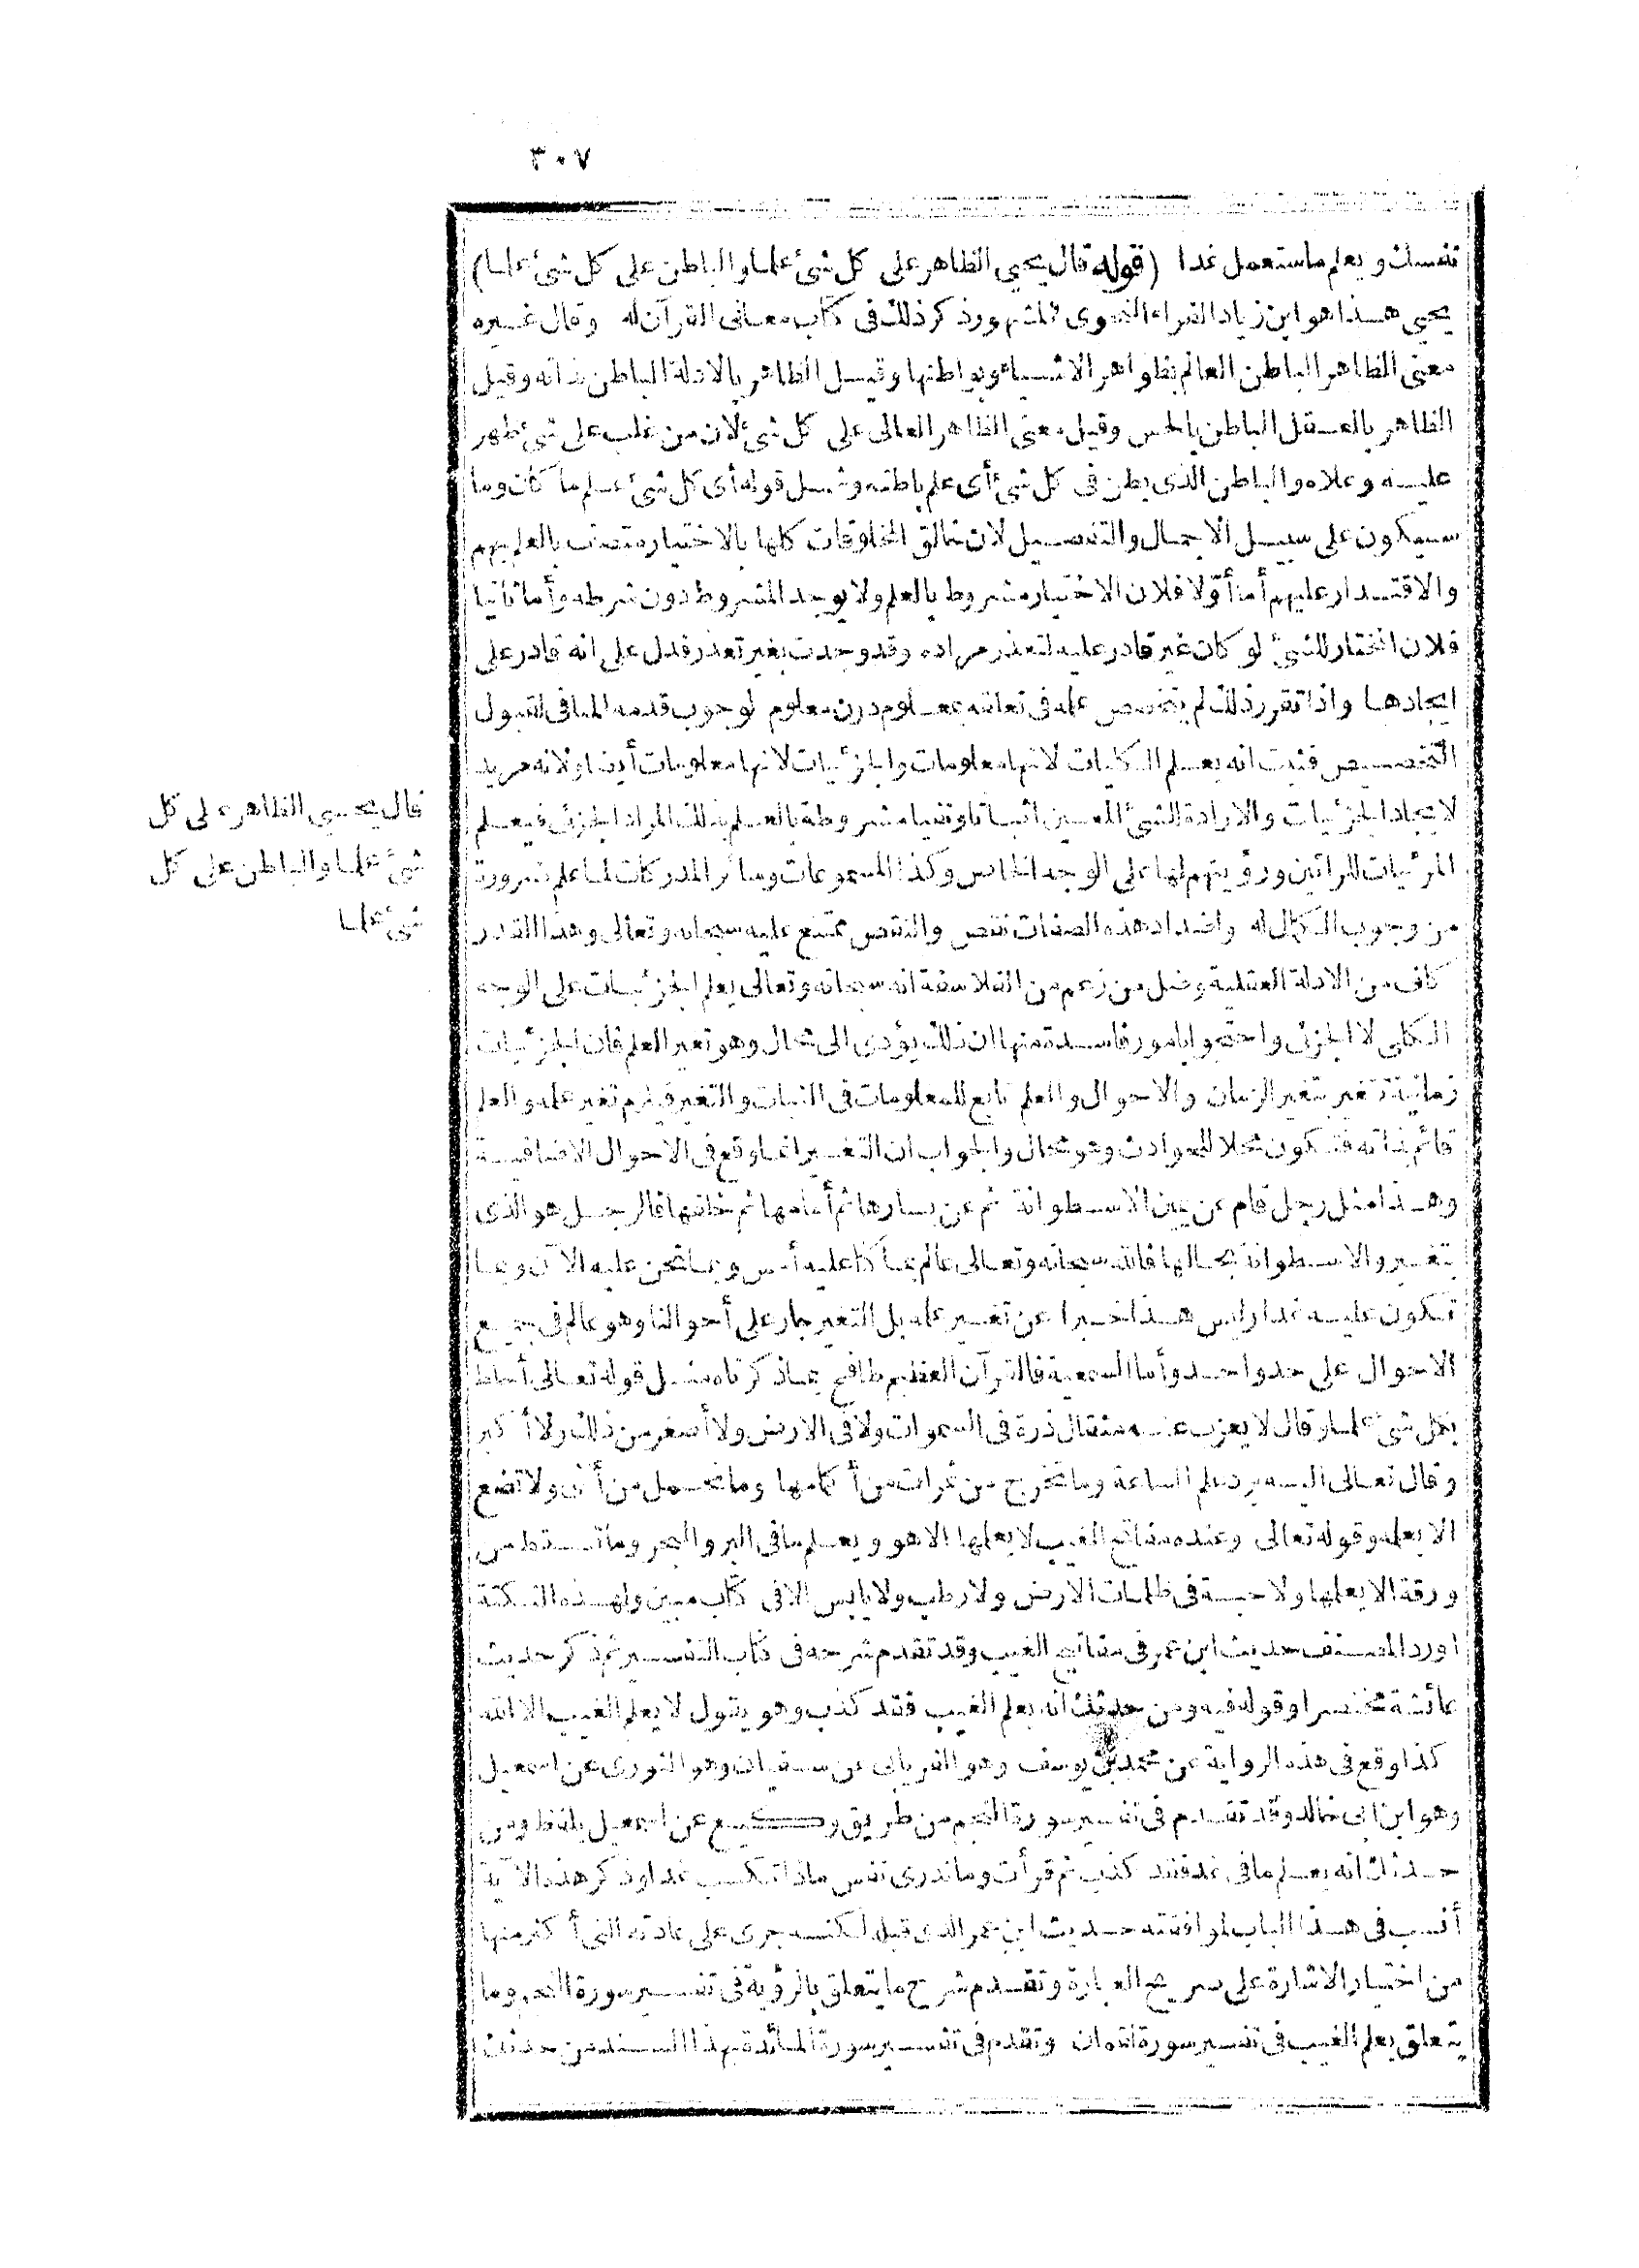 ٣٠٧
نفسك ويعلم ما ستعمل غدا (قوله قال يحيى الظاهر على كل شئ علما والباطن على كل شئ علما)
يحيى هذا هو ابن زياد الفراء النحوى المشهور ذكر ذلك فى كتاب معانى القرآن له وقال غيره
معنى الظاهر الباطن العالم بظواهر الاشياء وبواطنها وقيل الظاهر بالادلة الباطن بذاته وقيل
الظاهر بالعقل الباطن بالحس وقيل معنى الظاهر العالى على كل شئ لان من غلب على شئ ظهر
عليه وعلاه والباطن الذى بطن فى كل شئ أى علم باطنه وشمل قوله أى كل شئ علم ما كان وما
سيكون على سبيل الاجمال والتفصيل لان خالق المخلوقات كلها بالاختيار متصف بالعلم بهم
والاقتدار عليهم أما أوّلا فلان الاختيار مشروط بالعلم ولا يوجد المشروط دون شرطه وأما ثانيا
فلان المختار للشئ لو كان غير قادر عليه لتعذر مراده وقد وجدت بغير تعذر فدل على انه قادر على
ايجادها واذا تقرر ذلك لم يتخصص علمه فى تعلقه بمعلوم دون معلوم لوجوب قدمه المنافى لقبول
التخصيص فثبت انه يعلم الكليات لانها معلومات والجزئيات لانها معلومات أيضا ولانه مريد
لايجاد الجزئيات والارادة للشئ المعين اثباتا ونفيا مشروطة بالعلم بذلك المراد الجزئى فيعلم
المرئيات للرائين ورؤيتهم لها على الوجه الخاص وكذا المسموعات وسائر المدركات لما علم ضرورة
من وجوب الكمال له واضداد هذه الصفات نقص والنقص ممتنع عليه سبحانه وتعالى وهذا القدر
كاف من الادلة العقلية وضل من زعم من الفلاسفة انه سبحانه وتعالى يعلم الجزئيات على الوجه
الكلى لا الجزئى واحتجوا بامور فاسدة منها ان ذلك يؤدى الى محال وهو تغير العلم فان الجزئيات
زمانية تتغير بتغير الزمان والاحوال والعلم تابع للمعلومات فى الثبات والتغير فيلزم تغير علمه والعلم
قائم بذاته فتكون محلا للحوادث وهو محال والجواب ان التغير انما وقع فى الاحوال الاضافية
وهذا مثل رجل قام عن يمين الاسطوانة ثم عن يسارها ثم أمامها ثم خلفها فالرجل هو الذى
يتغير والاسطوانة بحالها فالله سبحانه وتعالى عالم بما كنا عليه أمس وبما نحن عليه الآن وبما
نكون عليه غدا وليس هذا خبرا عن تغير علمه بل التغير جار على أحوالنا وهو عالم فى جميع
الاحوال على حد واحد وأما السمعية فالقرآن العظيم طافح بما ذكرناه مثل قوله تعالى أحاط
بكل شئ علما وقال لا يعزب عنه مثقال ذرة فى السموات ولا فى الارض ولا أصغر من ذلك ولا أكبر
وقال تعالى اليه يرد علم الساعة وما تخرج من ثمرات من أكمامها وما تحمل من أنثى ولا تضع
الا بعلمه وقوله تعالى وعنده مفاتح الغيب لا يعلمها الا هو ويعلم ما فى البر والبحر وما تسقط من
ورقة الا يعلمها ولا حبة فى ظلمات الارض ولا رطب ولا يابس الا فى كتاب مبين ولهذه النكتة
اورد المصنف حديث ابن عمر فى مفاتيح الغيب وقد تقدم شرحه فى كتاب التفسير ثم ذكر حديث
عائشة مختصرا وقوله فيه ومن حدثك انه يعلم الغيب فقد كذب وهو يقول لا يعلم الغيب الا الله
كذا وقع فى هذه الرواية عن محمد بن يوسف وهو الفريابى عن سفيان وهو الثورى عن اسمعيل
وهو ابن ابى خالد وقد تقدم فى تفسير سورة النجم من طريق وكيع عن اسمعيل بلفظ ومن
حدثك انه يعلم ما فى غد فقد كذب ثم قرأت وما تدرى نفس ماذا تكسب غدا وذكر هذه الآية
أنسب فى هذا الباب لموافقته حديث ابن عمر الذى قبله لكنه جرى على عادته التى أكثر منها
من اختيار الاشارة على صريح العبارة وتقدم شرح ما يتعلق بالرؤية فى تفسير سورة النجم وما
يتعلق بعلم الغيب فى تفسير سورة لقمان وتقدم فى تفسير سورة المائدة بهذا السند من حدثك
قال يحيى الظاهر على كل
شئ علما والباطن على كل
شئ علما